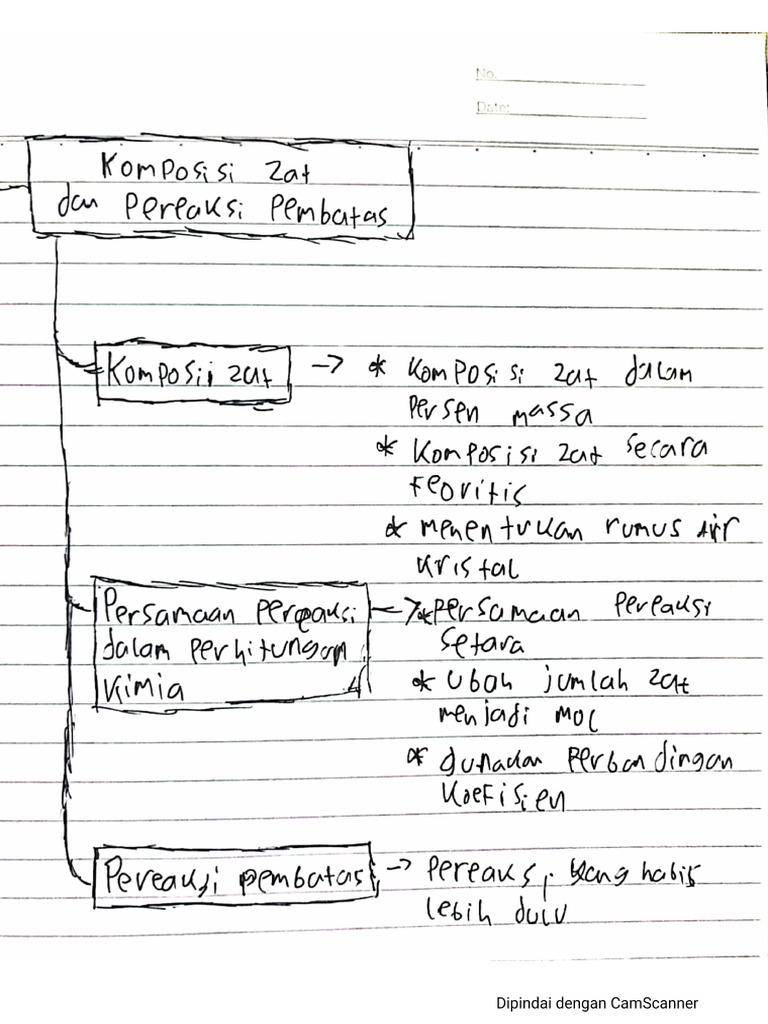 No.
Date:
Komposisi zat
dan Pereaksi Pembatas
Komposii zat → * Komposisi zat dalam
Persen massa
* Komposisi zat secara
teoritis
* menentukan rumus air
kristal
Persamaan pereaksi → * Persamaan Pereaksi
dalam perhitungan setara
kimia * Ubah jumlah zat
menjadi mol
* gunakan Perbandingan
koefisien
Pereaksi pembatas → Pereaksi yang habis
lebih dulu
Dipindai dengan CamScanner